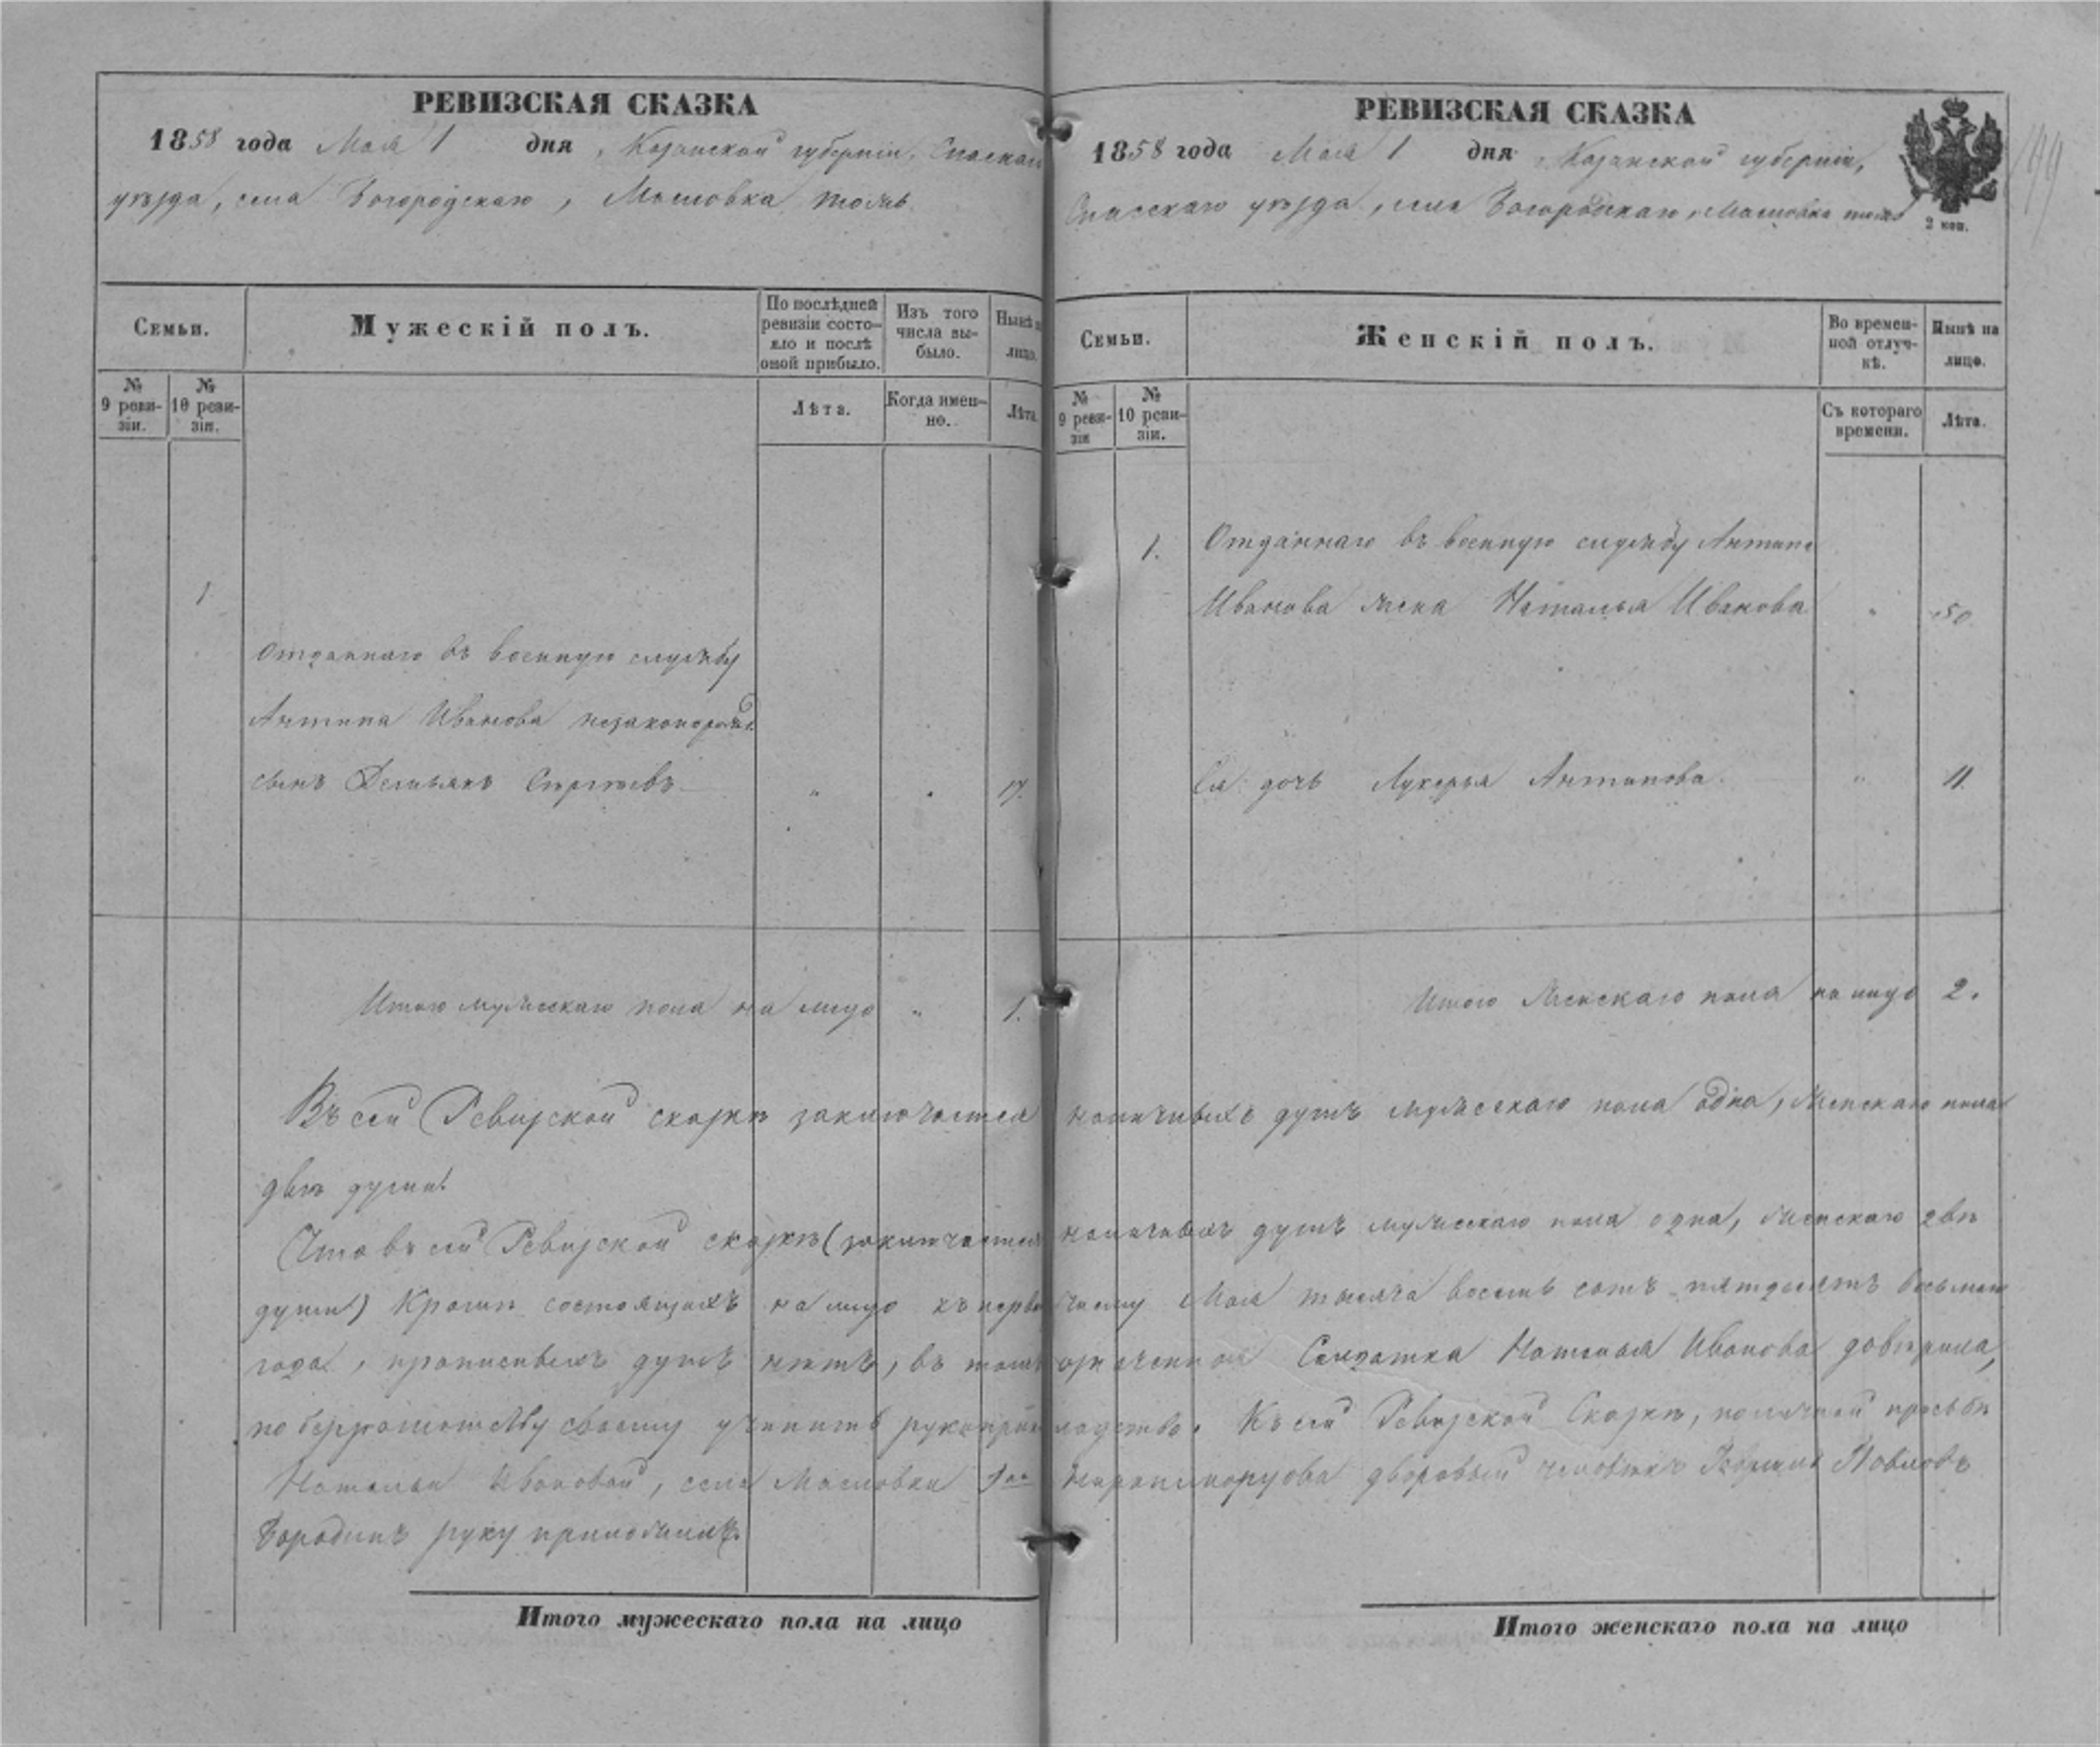 РЕВИЗСКАЯ СКАЗКА
1858 года Мая 1 дня, Казанской губернiи, Спаскаго
уѣзда, села Богородскаго, Масловка тожъ
Семьи.
Мужескiй полъ.
По послѣдней ревизiи состо-
яло и послѣ оной прибыло.
Изъ того числа вы-
было.
Нынѣ на лицо.
№ 9 реви-
зiи.
№ 10 реви-
зiи.
Лѣта.
Когда имен-
но.
Лѣта.
1
Отданнаго въ военную службу
Антипа Иванова незаконорожд.
сынъ Демьянъ Сергѣевъ „ „ 17.
Итого мужескаго пола на лицо „ 1.
РЕВИЗСКАЯ СКАЗКА
1858 года Мая 1 дня Казанской губернiи,
Спасскаго уѣзда, села Богородскаго, Масловка тожъ
2 коп.
Семьи.
Женскiй полъ.
Во времен-
ной отлуч-
кѣ.
Нынѣ на лицо.
№ 9 реви-
зiи
№ 10 реви-
зiи.
Съ котораго времени.
Лѣта.
1. Отданнаго въ военную службу Антипа
Иванова жена Наталья Иванова „ 50
Ея дочь Лукерья Антипова „ 11.
Итого Женскаго пола на лицо 2.
Въ сей Ревизской сказкѣ заключается наличныхъ душъ мужескаго пола одна, Женскаго пола
двѣ души.
Что въ сей Ревизской сказкѣ (заключается наличныхъ душъ мужескаго пола одна, женскаго двѣ
души) Кромѣ состоящихъ на лицо къ первому Мая тысяча восемь сотъ пятдесятъ восьмаго
года, прописныхъ душъ нѣтъ, въ томъ Солдатка Наталья Иванова довѣрила,
по безграмотству своему учинить рукоприкладство. Къ сей Ревизской Сказкѣ, по личной просьбѣ
Натальи Ивановой, села Масловки дворовый человѣкъ Павловъ
Бородинъ руку приложилъ.
Итого мужескаго пола на лицо
Итого женскаго пола на лицо